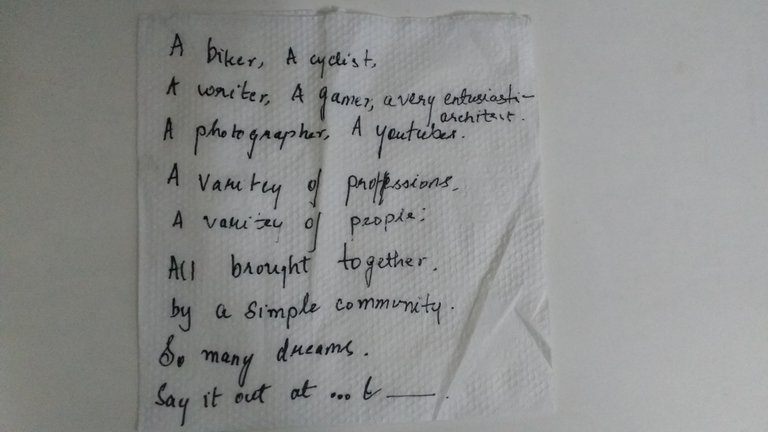 A biker, A cyclist,
A writer, A gamer, a very entusiasti-
architect.
A photographer, A youtuber.
A varitey of proffessions.
A varitey of people:
All brought together.
by a simple community.
So many dreams.
Say it out at ... t ___.